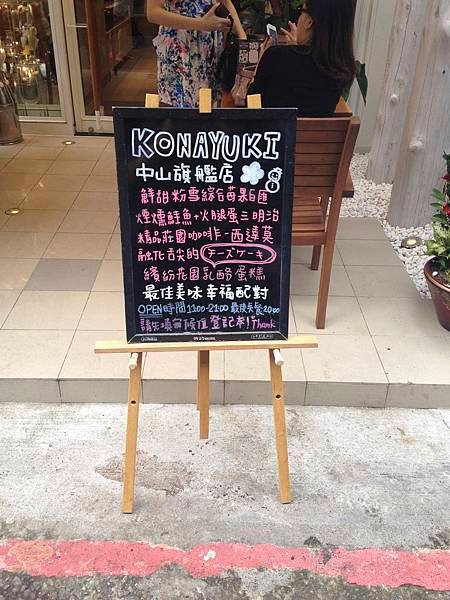 KONAYUKI
中山旗艦店
鮮甜粉雪綜合莓果8匯
煙燻鮭魚+火腿蛋三明治
精品莊園咖啡-西達莫
融化舌尖的チーズケーキ
繽紛花園乳酪蛋糕
最佳美味幸福配對
OPEN時間 11:00-21:00 最後点餐20:00
請先填寫候位登記本!Thank